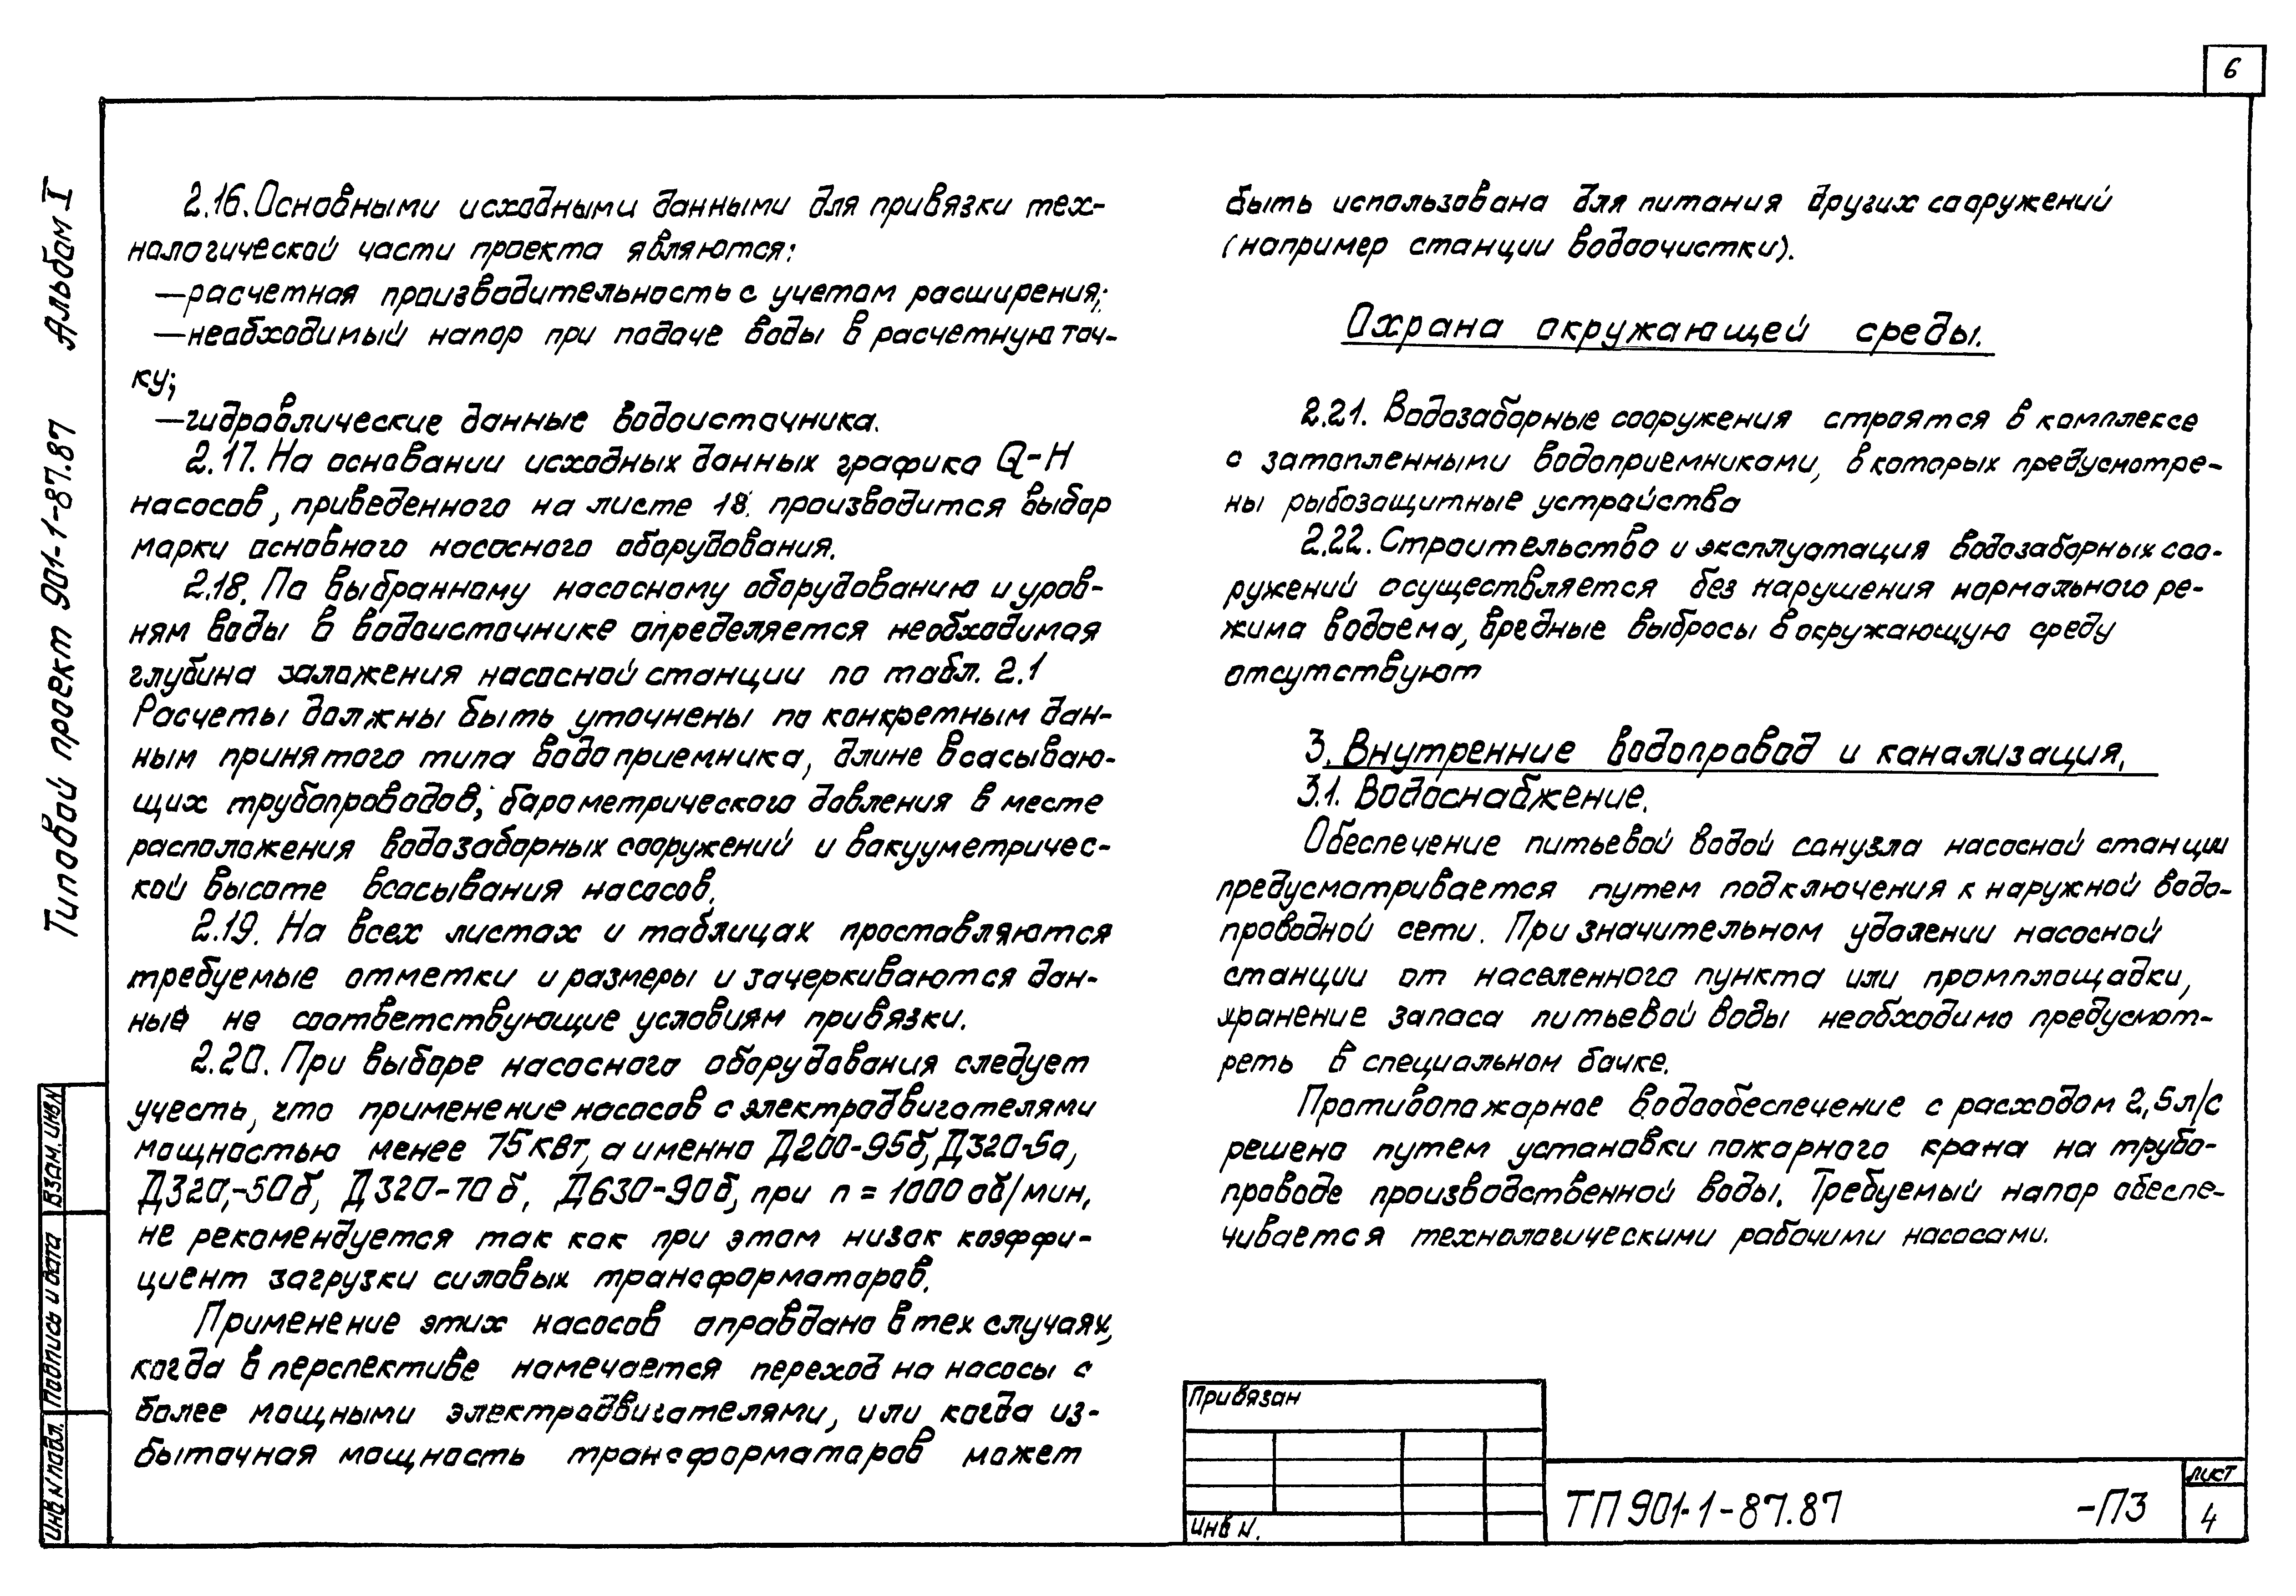 6
Типовой проект 901-1-87.87 Альбом I
2.16. Основными исходными данными для привязки тех-
нологической части проекта являются:
—расчетная производительность с учетом расширения;
—необходимый напор при подаче воды в расчетную точ-
ку;
—гидравлические данные водоисточника.
2.17. На основании исходных данных графика Q-H
насосов, приведенного на листе 18. производится выбор
марки основного насосного оборудования.
2.18. По выбранному насосному оборудованию и уров-
ням воды в водоисточнике определяется необходимая
глубина заложения насосной станции по табл. 2.1
Расчеты должны быть уточнены по конкретным дан-
ным принятого типа водоприемника, длине всасываю-
щих трубопроводов, барометрического давления в месте
расположения водозаборных сооружений и вакууметричес-
кой высоте всасывания насосов.
2.19. На всех листах и таблицах проставляются
требуемые отметки и размеры и зачеркиваются дан-
ные не соответствующие условиям привязки.
2.20. При выборе насосного оборудования следует
учесть, что применение насосов с электродвигателями
мощностью менее 75 квт, а именно Д200-95б, Д320-5а,
Д320,-50б, Д320-70б, Д630-90б, при n = 1000 об/мин,
не рекомендуется так как при этом низок коэффи-
циент загрузки силовых трансформаторов.
Применение этих насосов оправдано в тех случаях,
когда в перспективе намечается переход на насосы с
более мощными электродвигателями, или когда из-
быточная мощность трансформаторов может
быть использована для питания других сооружений
(например станции водоочистки).
Охрана окружающей среды.
2.21. Водозаборные сооружения строятся в комплексе
с затопленными водоприемниками, в которых предусмотре-
ны рыбозащитные устройства
2.22. Строительство и эксплуотация водозаборных соо-
ружений осуществляется без нарушения нормального ре-
жима водоема, вредные выбросы в окружающую среду
отсутствуют
3. Внутренние водопровод и канализация.
3.1. Водоснабжение.
Обеспечение питьевой водой санузла насосной станции
предусматривается путем подключения к наружной водо-
проводной сети. При значительном удалении насосной
станции от населенного пункта или промплощадки,
хранение запаса питьевой воды необходимо предусмот-
реть в специальном бачке.
Противопожарное водообеспечение с расходом 2,5л/с
решено путем установки пожарного крана на трубо-
проводе производственной воды. Требуемый напор обеспе-
чивается технологическими рабочими насосами.
Взам. инв N
Подпись и дата
Инв N подл.
Привязан
Инв N.
ТП 901-1-87.87 -ПЗ
лист
4